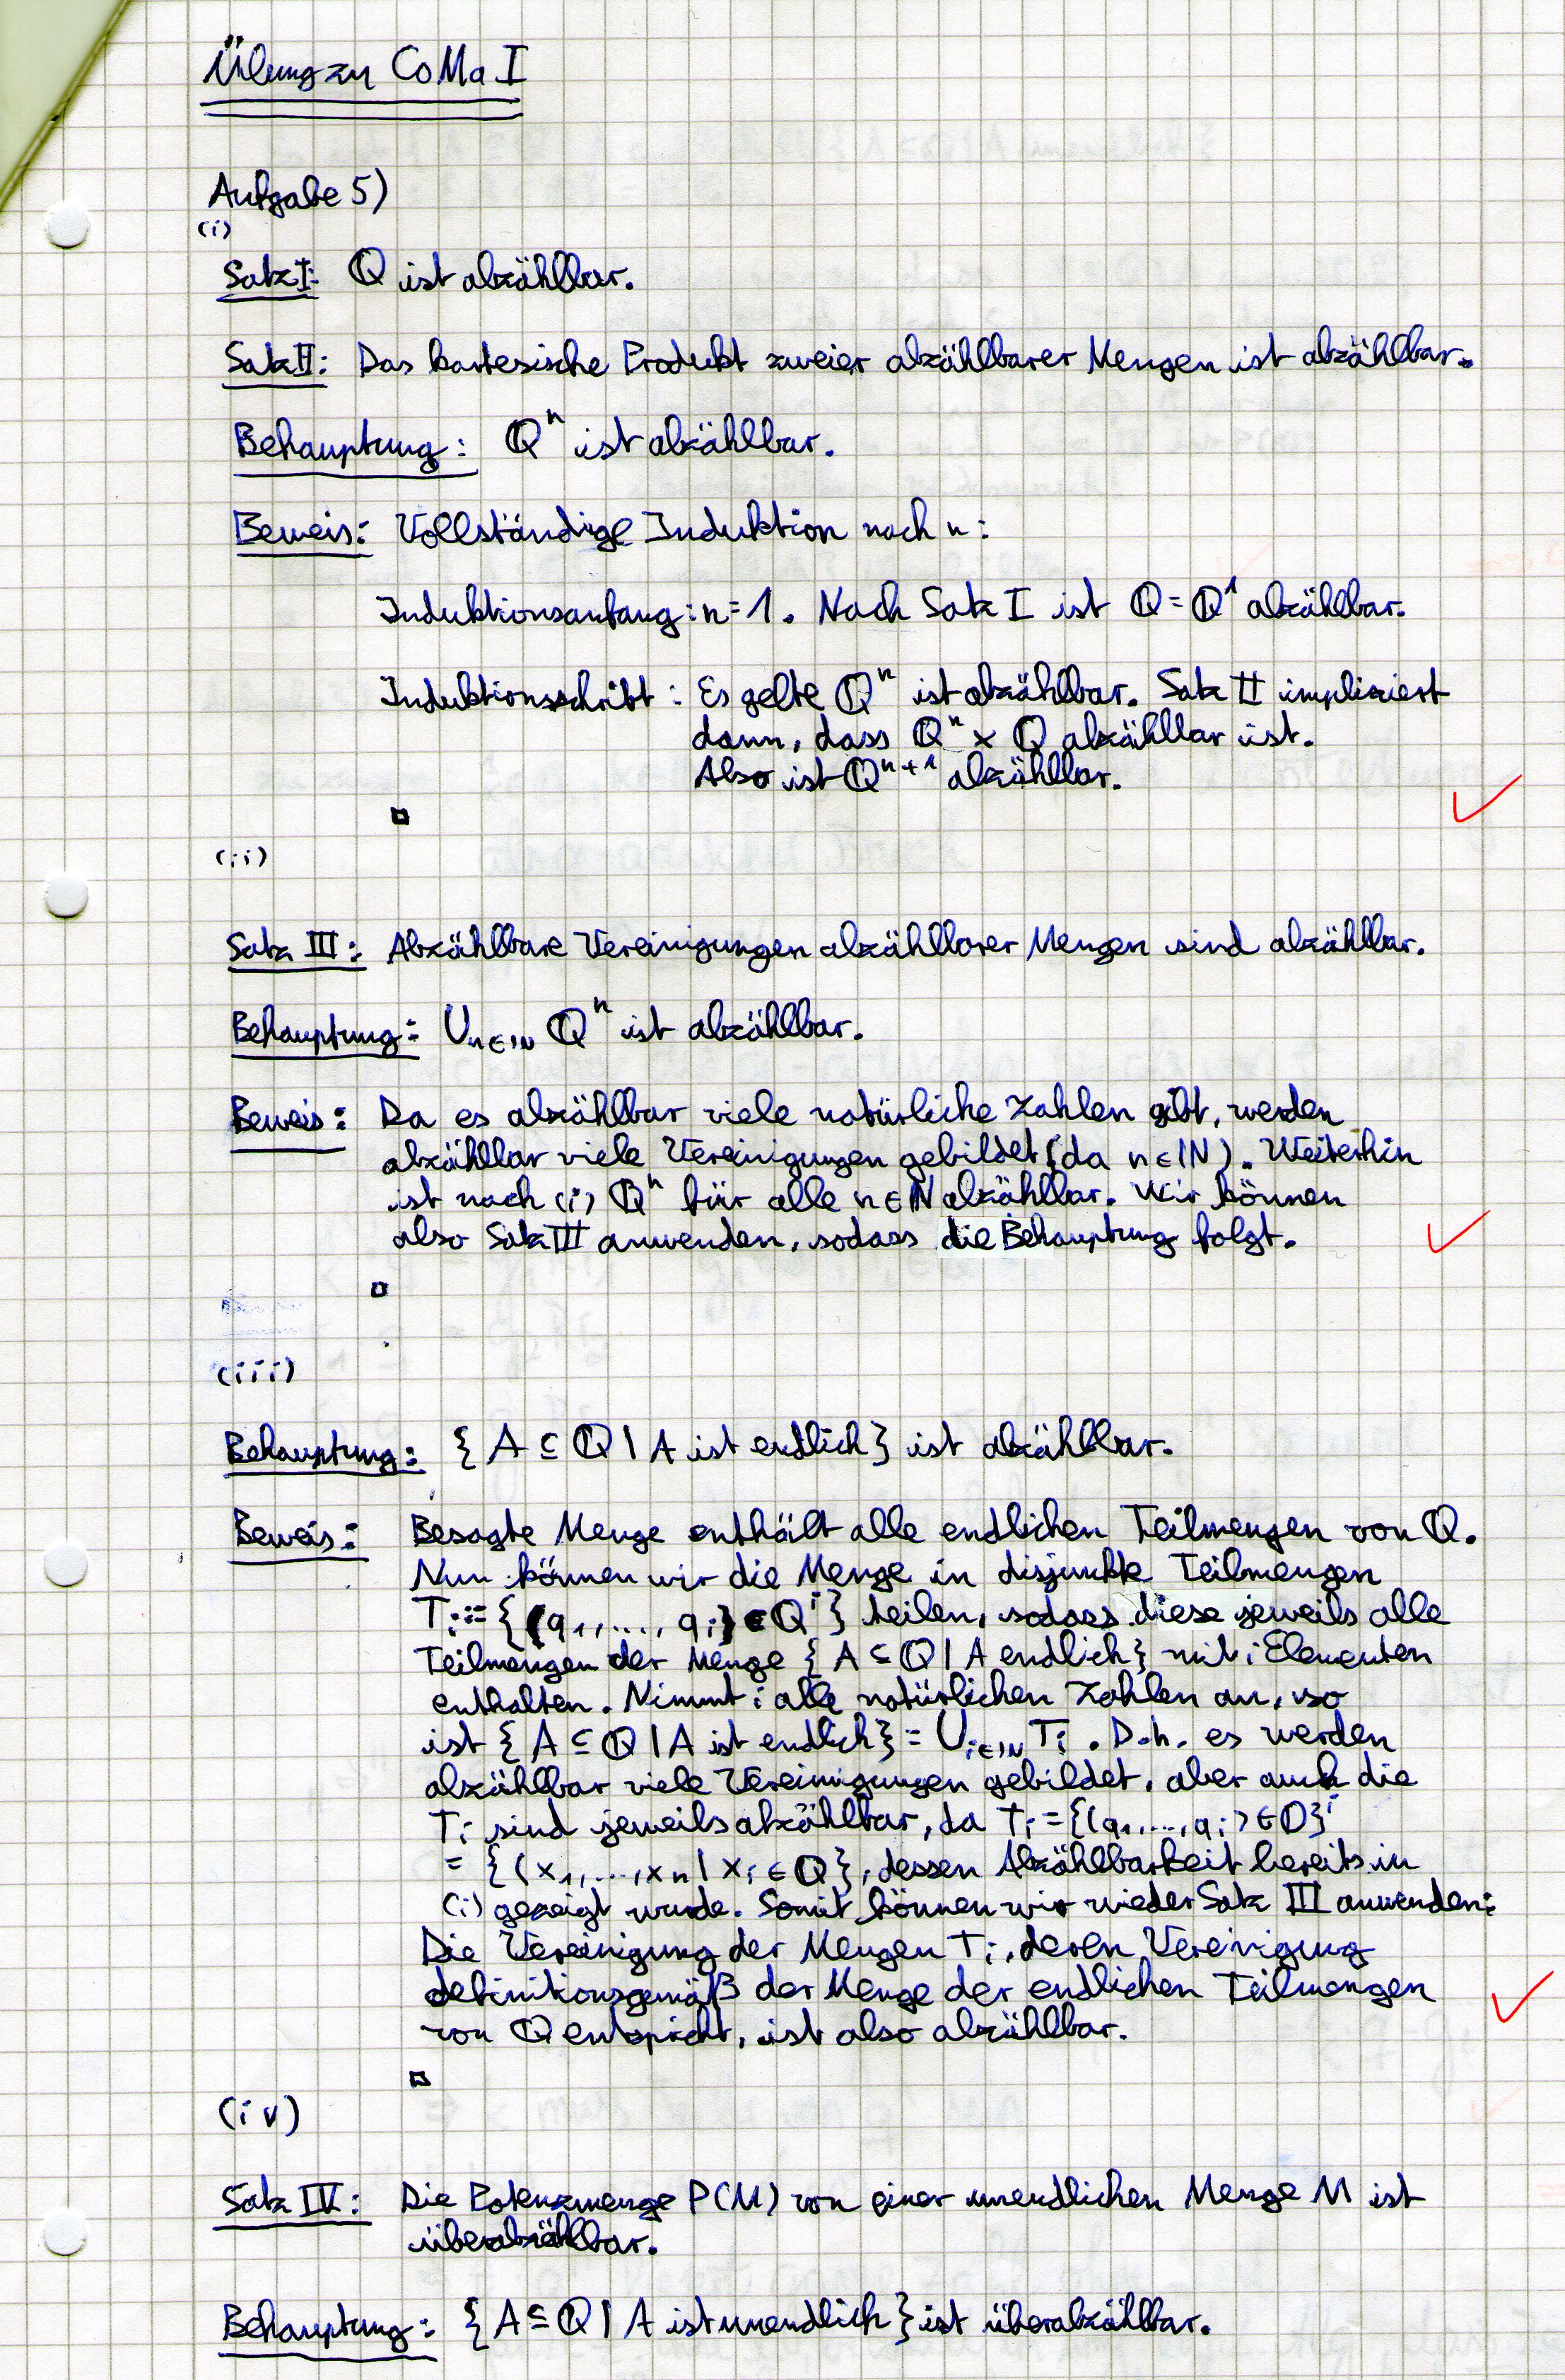 Übung zu CoMa I
Aufgabe 5)
(i)
Satz I: ℚ ist abzählbar.
Satz II: Das kartesische Produkt zweier abzählbarer Mengen ist abzählbar.
Behauptung: ℚⁿ ist abzählbar.
Beweis: Vollständige Induktion nach n:
Induktionsanfang: n=1. Nach Satz I ist ℚ=ℚ¹ abzählbar.
Induktionsschritt: Es gelte ℚⁿ ist abzählbar. Satz II impliziert
dann, dass ℚⁿ × ℚ abzählbar ist.
Also ist ℚⁿ⁺¹ abzählbar.
□
(ii)
Satz III: Abzählbare Vereinigungen abzählbarer Mengen sind abzählbar.
Behauptung: ∪ₙ∈ℕ ℚⁿ ist abzählbar.
Beweis: Da es abzählbar viele natürliche Zahlen gibt, werden
abzählbar viele Vereinigungen gebildet (da n∈ℕ). Weiterhin
ist nach (i) ℚⁿ für alle n∈ℕ abzählbar. Wir können
also Satz III anwenden, sodass die Behauptung folgt.
□
(iii)
Behauptung: {A ⊆ ℚ | A ist endlich} ist abzählbar.
Beweis: Besagte Menge enthält alle endlichen Teilmengen von ℚ.
Nun können wir die Menge in disjunkte Teilmengen
Tᵢ := {{q₁,..., qᵢ} ∈ ℚⁱ} teilen, sodass diese jeweils alle
Teilmengen der Menge {A ⊆ ℚ | A endlich} mit i Elementen
enthalten. Nimmt i alle natürlichen Zahlen an, so
ist {A ⊆ ℚ | A ist endlich} = ∪ᵢ∈ℕ Tᵢ. D.h. es werden
abzählbar viele Vereinigungen gebildet, aber auch die
Tᵢ sind jeweils abzählbar, da Tᵢ = {(q₁,..., qᵢ) ∈ ℚ}ⁱ
= {(x₁,...,xₙ | xᵢ ∈ ℚ}, dessen Abzählbarkeit bereits in
(i) gezeigt wurde. Somit können wir wieder Satz III anwenden:
Die Vereinigung der Mengen Tᵢ, deren Vereinigung
definitionsgemäß der Menge der endlichen Teilmengen
von ℚ entspricht, ist also abzählbar.
□
(iv)
Satz IV: Die Potenzmenge P(M) von einer unendlichen Menge M ist
überabzählbar.
Behauptung: {A ⊆ ℚ | A ist unendlich} ist überabzählbar.